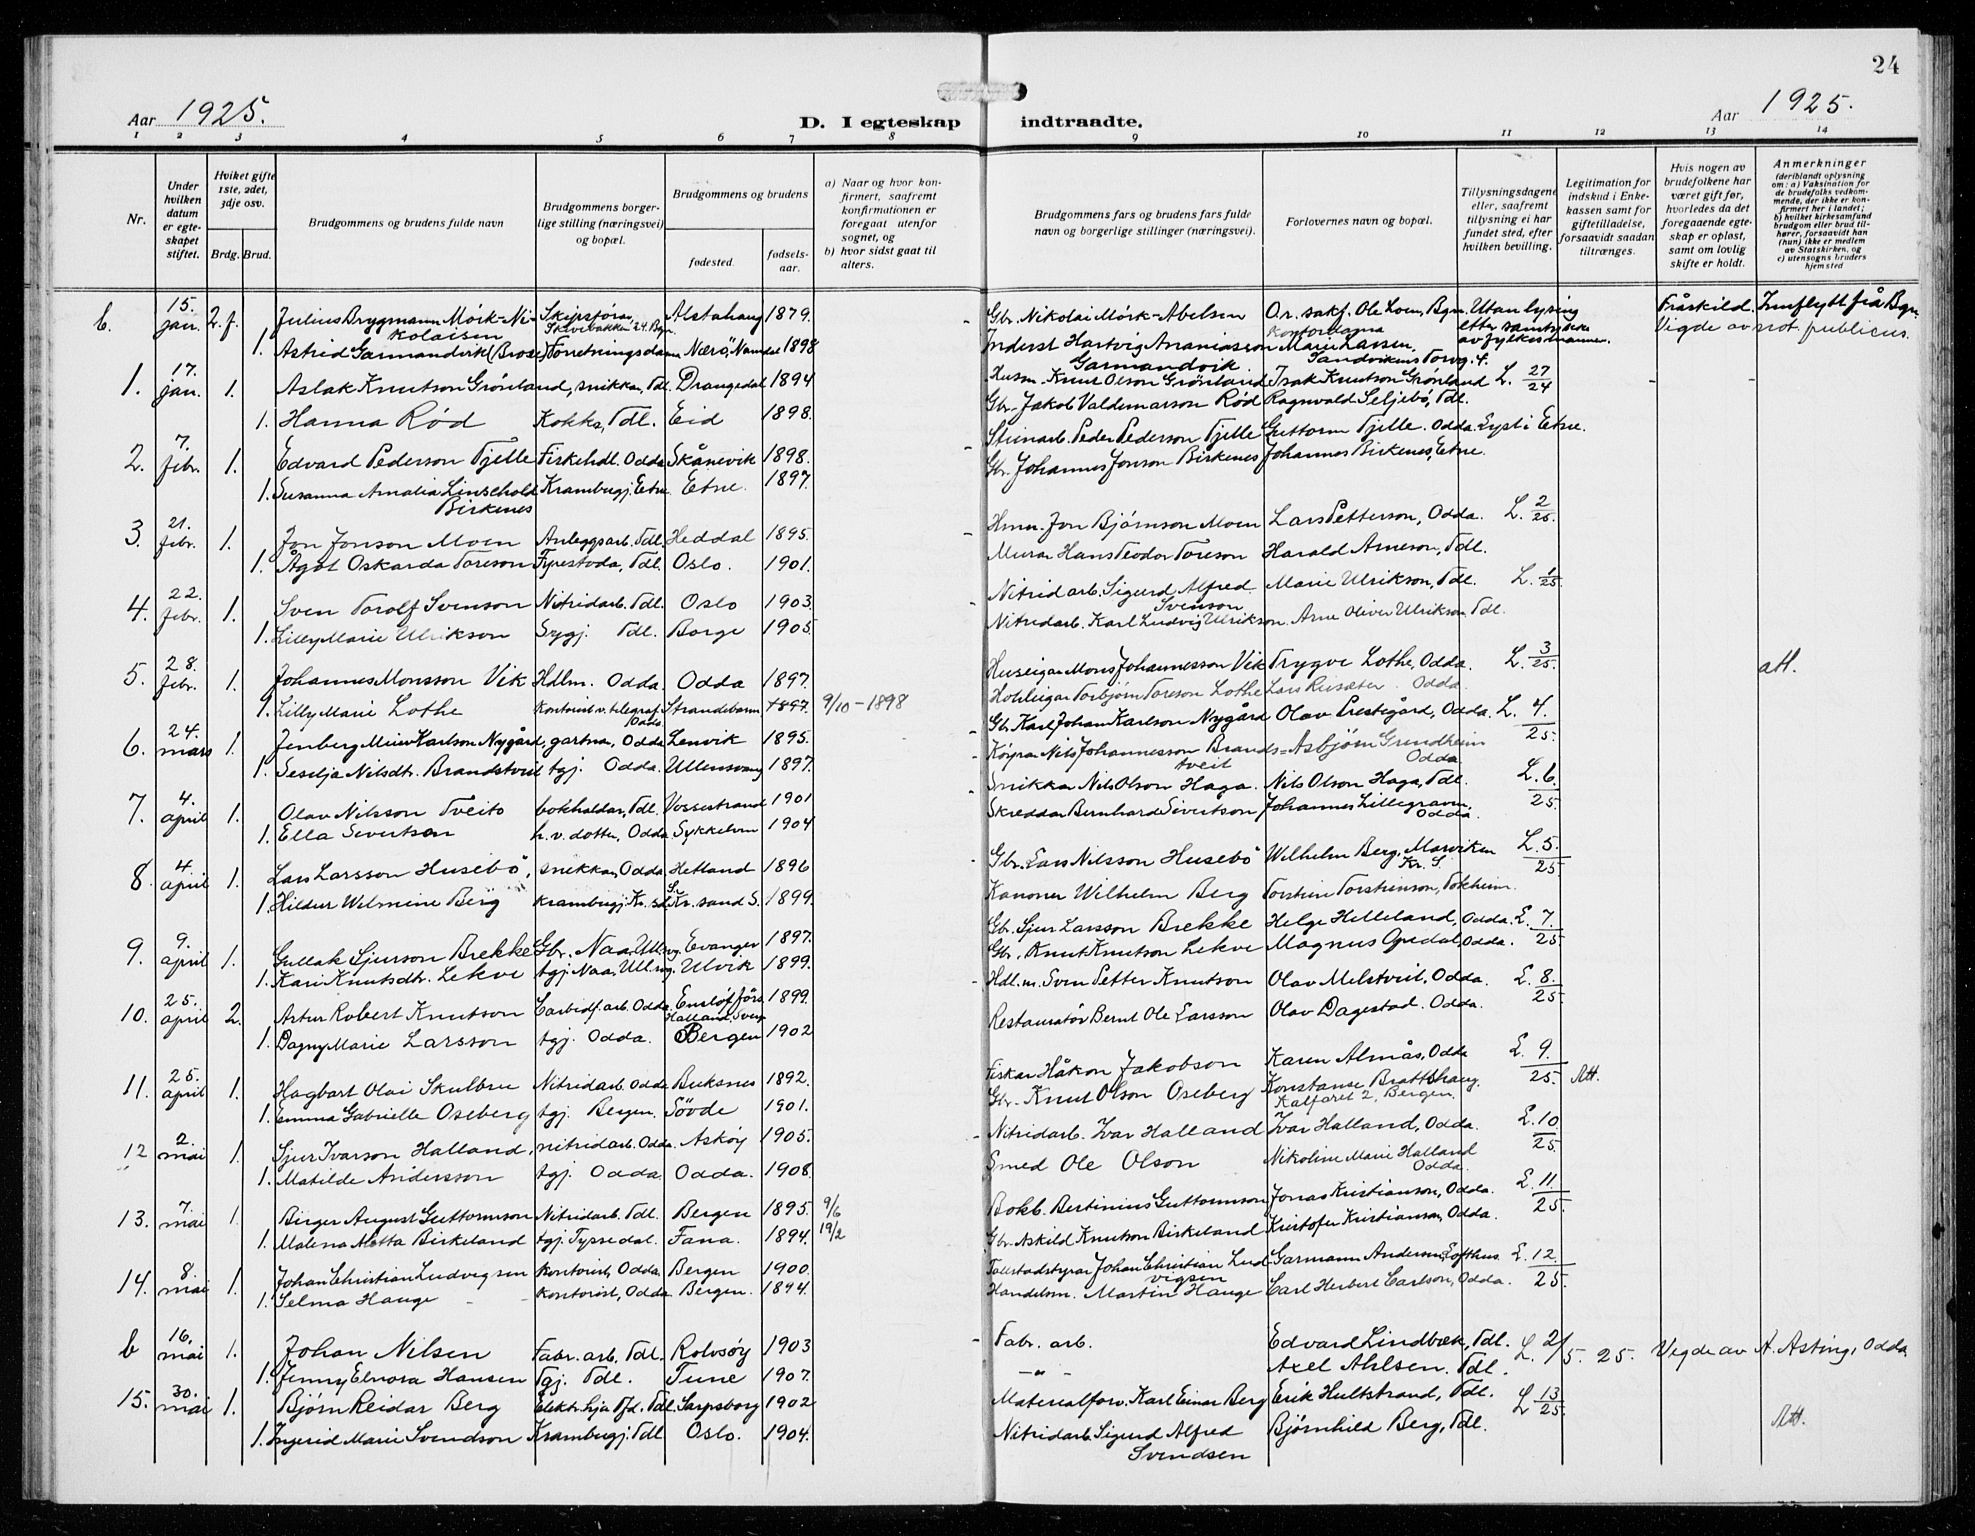 24
Aar 1925.
D. I egteskap indtraadte.
Aar 1925.
1 2 3 4 5 6 7 8 9 10 11 12 13 14
Nr.
Under hvilken datum er egteskapet stiftet.
Hviket gifte 1ste, 2det, 3dje osv.
Brdg. Brud.
Brudgommens og brudens fulde navn
Brudgommens borgerlige stilling (næringsvei) og bopæl.
Brudgommens og brudens
fødested.
fødselsaar.
a) Naar og hvor konfirmert, saafremt konfirmationen er foregaat utenfor sognet, og
b) hvor sidst gaat til alters.
Brudgommens fars og brudens fars fulde navn og borgerlige stillinger (næringsvei).
Forlovernes navn og bopæl.
Tillysningsdagene eller, saafremt tillysning ei har fundet sted, efter hvilken bevilling.
Legitimation for indskud i Enkekassen samt for giftetilladelse, forsaavidt saadan tiltrænges.
Hvis nogen av brudefolkene har været gift før, hvorledes da det foregaaende egteskap er opløst, samt om lovlig skifte er holdt.
Anmerkninger (deriblandt oplysning om: a) Vaksination for de brudefolks vedkommende, der ikke er konfirmert her i landet; b) hvilket kirkesamfund brudgom eller brud tilhører, forsaavidt han (hun) ikke er medlem av Statskirken, og c) utensogns bruders hjemsted
15. jan. 2. f. Julius Brygmann Mörk-Nikolaisen Skipsförar, Skivebakken 24. Bgn. Alstahaug 1879. Gbr. Nikolai Mörk-Abelsen O.r. sakf. Ole Loen, Bgn. Utan lysing etter samtykke av fylkesmannen. Fråskild Innflytt frå Bgn. Vigde av not. publicus.
1. Astrid Garmandvik (Brose) Forretningsdame Nærö, Namdal 1898 Inderst Hartvig Ananiasson Garmandvik. Kontordama Marie Larsen, Sandvikens Torvg. 4.
1. 17. jan. 1. Aslak Knutson Grönland, snikkar, Tdl. Drangedal 1894 Husm. Knut Olson Grönland Isak Knutson Grönland L. 27/24 - -
1. Hanna Röd Kokka, Tdl. Eid 1898. Gbr. Jakob Valdemarson Röd Ragnvald Seljebö, Tdl.
2. 7. febr. 1. Edvard Pederson Tjelle Fiskehdl. Odda Skånevik 1898. Steinarb. Peder Pederson Tjelle Guttorm Tjelle. Odda. Lyst i Etne.
1. Susanna Amalia Linschold Birkenes Krambugj. Etne Etne. 1897. Gbr. Johannes Jonson Birkenes Johannes Birkenes, Etne.
3. 21. febr. 1. Jon Jonson Moen Anleggsarb. Tdl. Heddal 1895. Hmn. Jon Bjørnson Moen Lars Petterson, Odda. L. 2/25.
1. Ågot Oskarda Toreson Fyrestoda, Tdl. Oslo. 1901. Murar Hans Teodor Toreson Harald Arneson, Tdl.
4. 22. febr. 1. Sven Torolf Svenson Nitridarb. Tdl. Oslo 1903. Nitridarb. Sigurd Alfred Svenson Marie Ulrikson, Tdl. L. 1/25.
1. Lilly Marie Ulrikson Sygj. Tdl. Borge 1905. Nitridarb. Karl Ludvig Ulrikson. Arne Oliver Ulrikson Tdl.
5. 28. febr. 1. Johannes Monsson Vik Hdlm. Odda. Odda 1897. Huseigar Mons Johannesson Vik Trygve Lothe, Odda. L. 3/25. att.
1. Lilly Marie Lothe Kontorist v. telegraf. Odda Strandebarm 1897. 9/10 - 1898 Hotleigar Torbjörn Toreson Lothe Lars Reisæter. Odda.
6. 24. mars 1. Jenberg Meier Karlson Nygård, gartnar, Odda Lenvik 1895. Gbr. Karl Johan Karlson Nygård Olav Prestegård, Odda. L. 4./25.
1. Sesilja Nilsdt. Brandstveit tgj. Odda. Ullensvang 1897. Köyrar Nils Johannesson Brandstveit Asbjörn Grendheim Odda
7. 4. april 1. Olav Nilsson Tveito bokhaldar, Tdl. Vossestrand 1901 Snikkar Nils Olson Haga. Nils Olson Haga, Tdl. L. 6./25.
1. Ella Severtson h. v. dotter, Odda Sykkelven 1904 Skreddar Bernhard Sivertson Johannes Lillegraven, Odda.
8. 4. april 1. Lars Larsson Husebö, snikkar, Odda Hetland 1896 Gbr. Lars Nilsson Husebö Wilhelm Berg, Marviken Kr. S. L. 5./25.
1. Hildur Wilmine Berg krambugj. Kr. sd. S. Kr. sand S. 1899. Kanoner Wilhelm Berg Torstein Torsteinson, Tokheim.
9. 9. april 1. Gullak Sjurson Brekke Gbr. Naa, Ull.vg. Evanger 1897. Gbr. Sjur Larsson Brekke Helge Helleland, Odda. L. 7/25.
1. Kari Knutsdt. Lekve tgj. Naa, Ull.vg. Ulvik 1899. Gbr. Knut Knutson Lekve Magnus Opedal, Odda.
10. 25. april 2. Artur Robert Knutson Carbidf. arb. Odda Enslöf förs. Halland. Sver. 1899. Hdl.m. Sven Petter Knutson Olav Melstveit, Odda. L. 8./25.
1. Dagny Marie Larsson tgj. Odda. Bergen 1902 Restauratör Bernt Ole Larsson Olav Dagestad. Odda.
11. 25. april 1. Hagbart Olai Skulbru Nitridarb. Odda Buksnes 1892. Fiskar Håkon Jakobson Karen Almås, Odda L. 9./25. Att.
1. Emma Gabrielle Oseberg tgj. Bergen. Sövde 1901. Gbr. Knut Olson Oseberg Konstanse Bratthaug, Kalfaret 2, Bergen.
12 2. mai 1. Sjur Ivarson Halland, nitridarb. Odda. Asköy 1905. Nitridarb. Ivar Halland Ivar Halland, Odda. L. 10/25.
1. Matilde Andersson tgj. Odda Odda. 1908. Smed Ole Olson Nikoline Marie Halland Odda.
13. 7. mai 1. Birger August Guttormson Nitridarb. Tdl. Bergen 1895. 9/6 Bokb. Bertinius Guttormson Jonas Kristianson, Odda. L. 11/25.
1. Malena Metta Birkeland tgj. Tyssedal. Fana. 1894. 19/2 Gbr. Askild Knutson Birkeland Kristofer Kristianson, Odda.
14. 8. mai 1. Johan Christian Ludvigsen kontorist, Odda. Bergen 1900. Tollstadstyrar Johan Christian Ludvigsen Garmann Andersen, Lofthus. L. 12./25.
1. Selma Hauge - - kontorist, Odda. Bergen. 1894. Handelsm. Martin Hauge Carl Herbert Carlson, Odda.
b 16. mai 1. Johan Nilsen Fabr. arb. Tdl. Rolvsöy 1903 Fabr. arb. Edvard Lindbæk, Tdl. L. 2/5. 25. Vigde av A. Asting, Odda
1. Jenny Elvora Hansen Tgj. Tdl. Tune 1907. - " - Axel Ahlsen. Tdl.
15. 30. mai 1. Bjørn Reidar Berg Elektr. hja Tfd. Tdl. Sarpsborg 1902 Materialforv. Karl Einar Berg Erik Hultstrand, Tdl. L 13/25. Att.
1. Ingerid Marie Svendson Krambugj. Tdl. Oslo. 1904. Nitridarb. Sigurd Alfred Svendsen Bjørnhild Berg, Tdl.